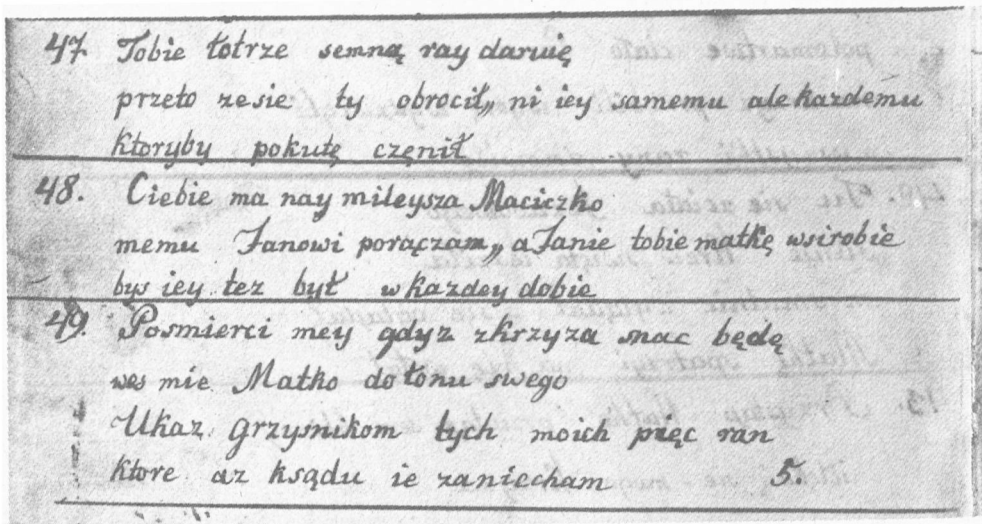 47 Tobie łotrze semną ray daruię
przeto zesie ty obrocił,, ni iey samemu ale kazdemu
ktoryby pokutę częnił
48. Ciebie ma nay mileysza Maciczko
memu Janowi porączam,, a Janie tobie matkę wsirobie
bys iey tez był w kazdey dobie
49. Posmierci mey gdyz zkrzyza snac będę
wes mie Matko do łonu swego
Ukaz grzysnikom tych moich pięc ran
ktore az ksądu ie zaniecham 5.